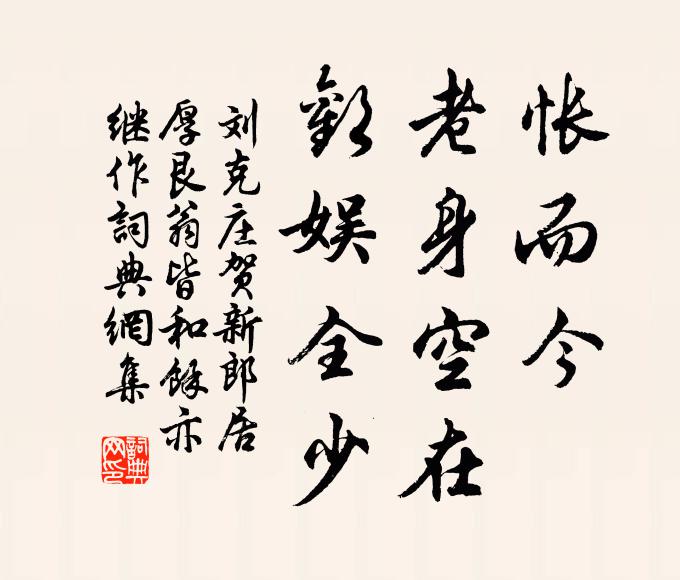 怅而今
老身空在
歡娱全少
刘克庄贺新郎居
厚艮翁皆和餘亦
继作詞典網集
詞典網印